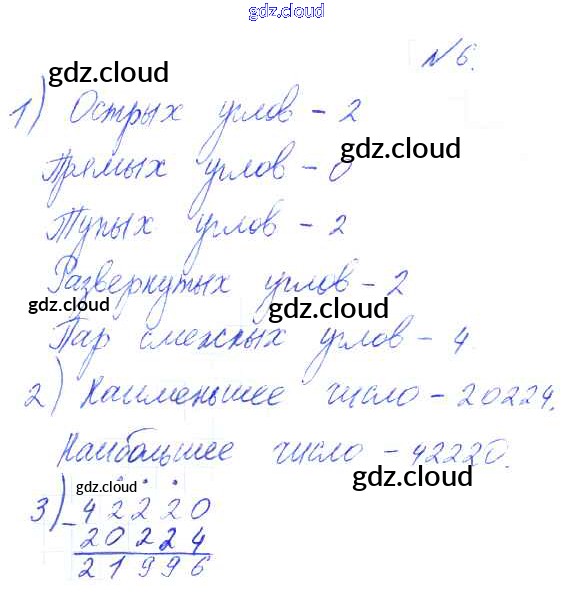 gdz.cloud
№ 6.
gdz.cloud
1) Острых углов – 2
gdz.cloud
Прямых углов – 0
Тупых углов – 2
Развернутых углов – 2
gdz.cloud
gdz.cloud
Пар смежных углов – 4.
2) Наименьшее число – 20224.
Наибольшее число – 42220.
gdz.cloud
gdz.cloud
3) – 42220
20224
21996